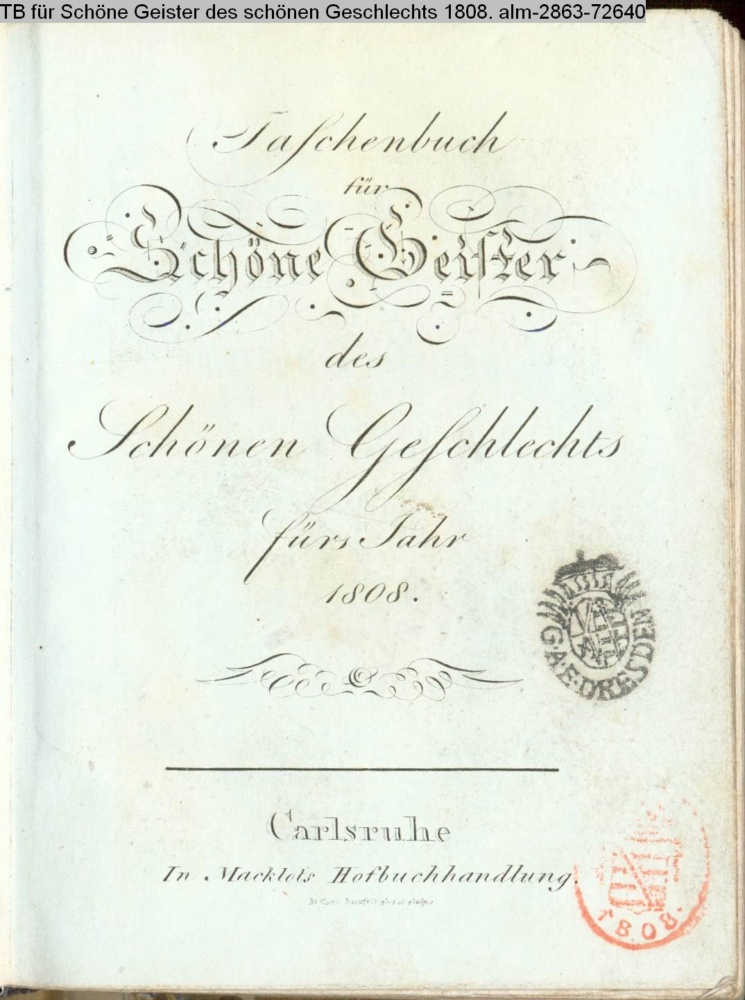 TB für Schöne Geister des schönen Geschlechts 1808. alm-2863-72640
Taſchenbuch
für
Schöne Geiſter
des
Schönen Geſchlechts
fürs Jahr
1808.
G.A.E. DRESDEN
Carlsruhe
In Macklots Hofbuchhandlung.
1808.